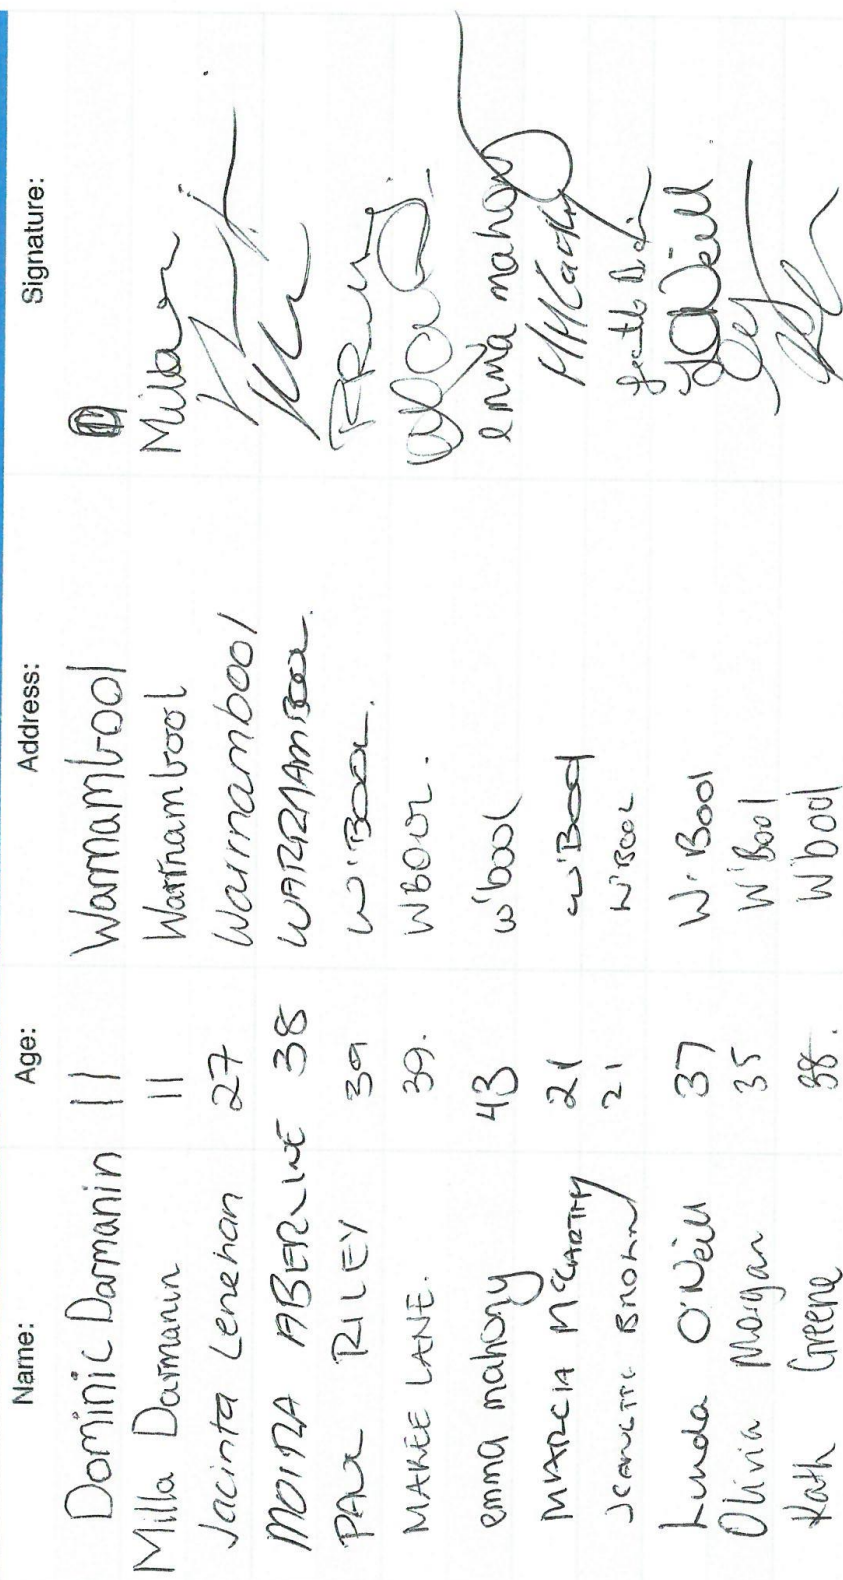 Name: Age: Address: Signature:
Dominic Darmanin 11 Warrnambool
Milla Darmanin 11 Warrnambool Milla
Jacinta Lenehan 27 Warrnambool
MOIRA ABERLINE 38 WARRNAMBOOL.
PAUL RILEY 39 W'BOOL.
MAREE LANE. 39. WBOOL.
emma mahony 43 w'bool emma mahony
MARCIA McCARTHY 21 W'Bool MMcCarthy
JEANETTE BROWN 21 W'BOOL
Linda O'Neill 37 W'Bool LO'Neill.
Olivia Morgan 35 W'Bool
Kath Greene 38. W'bool